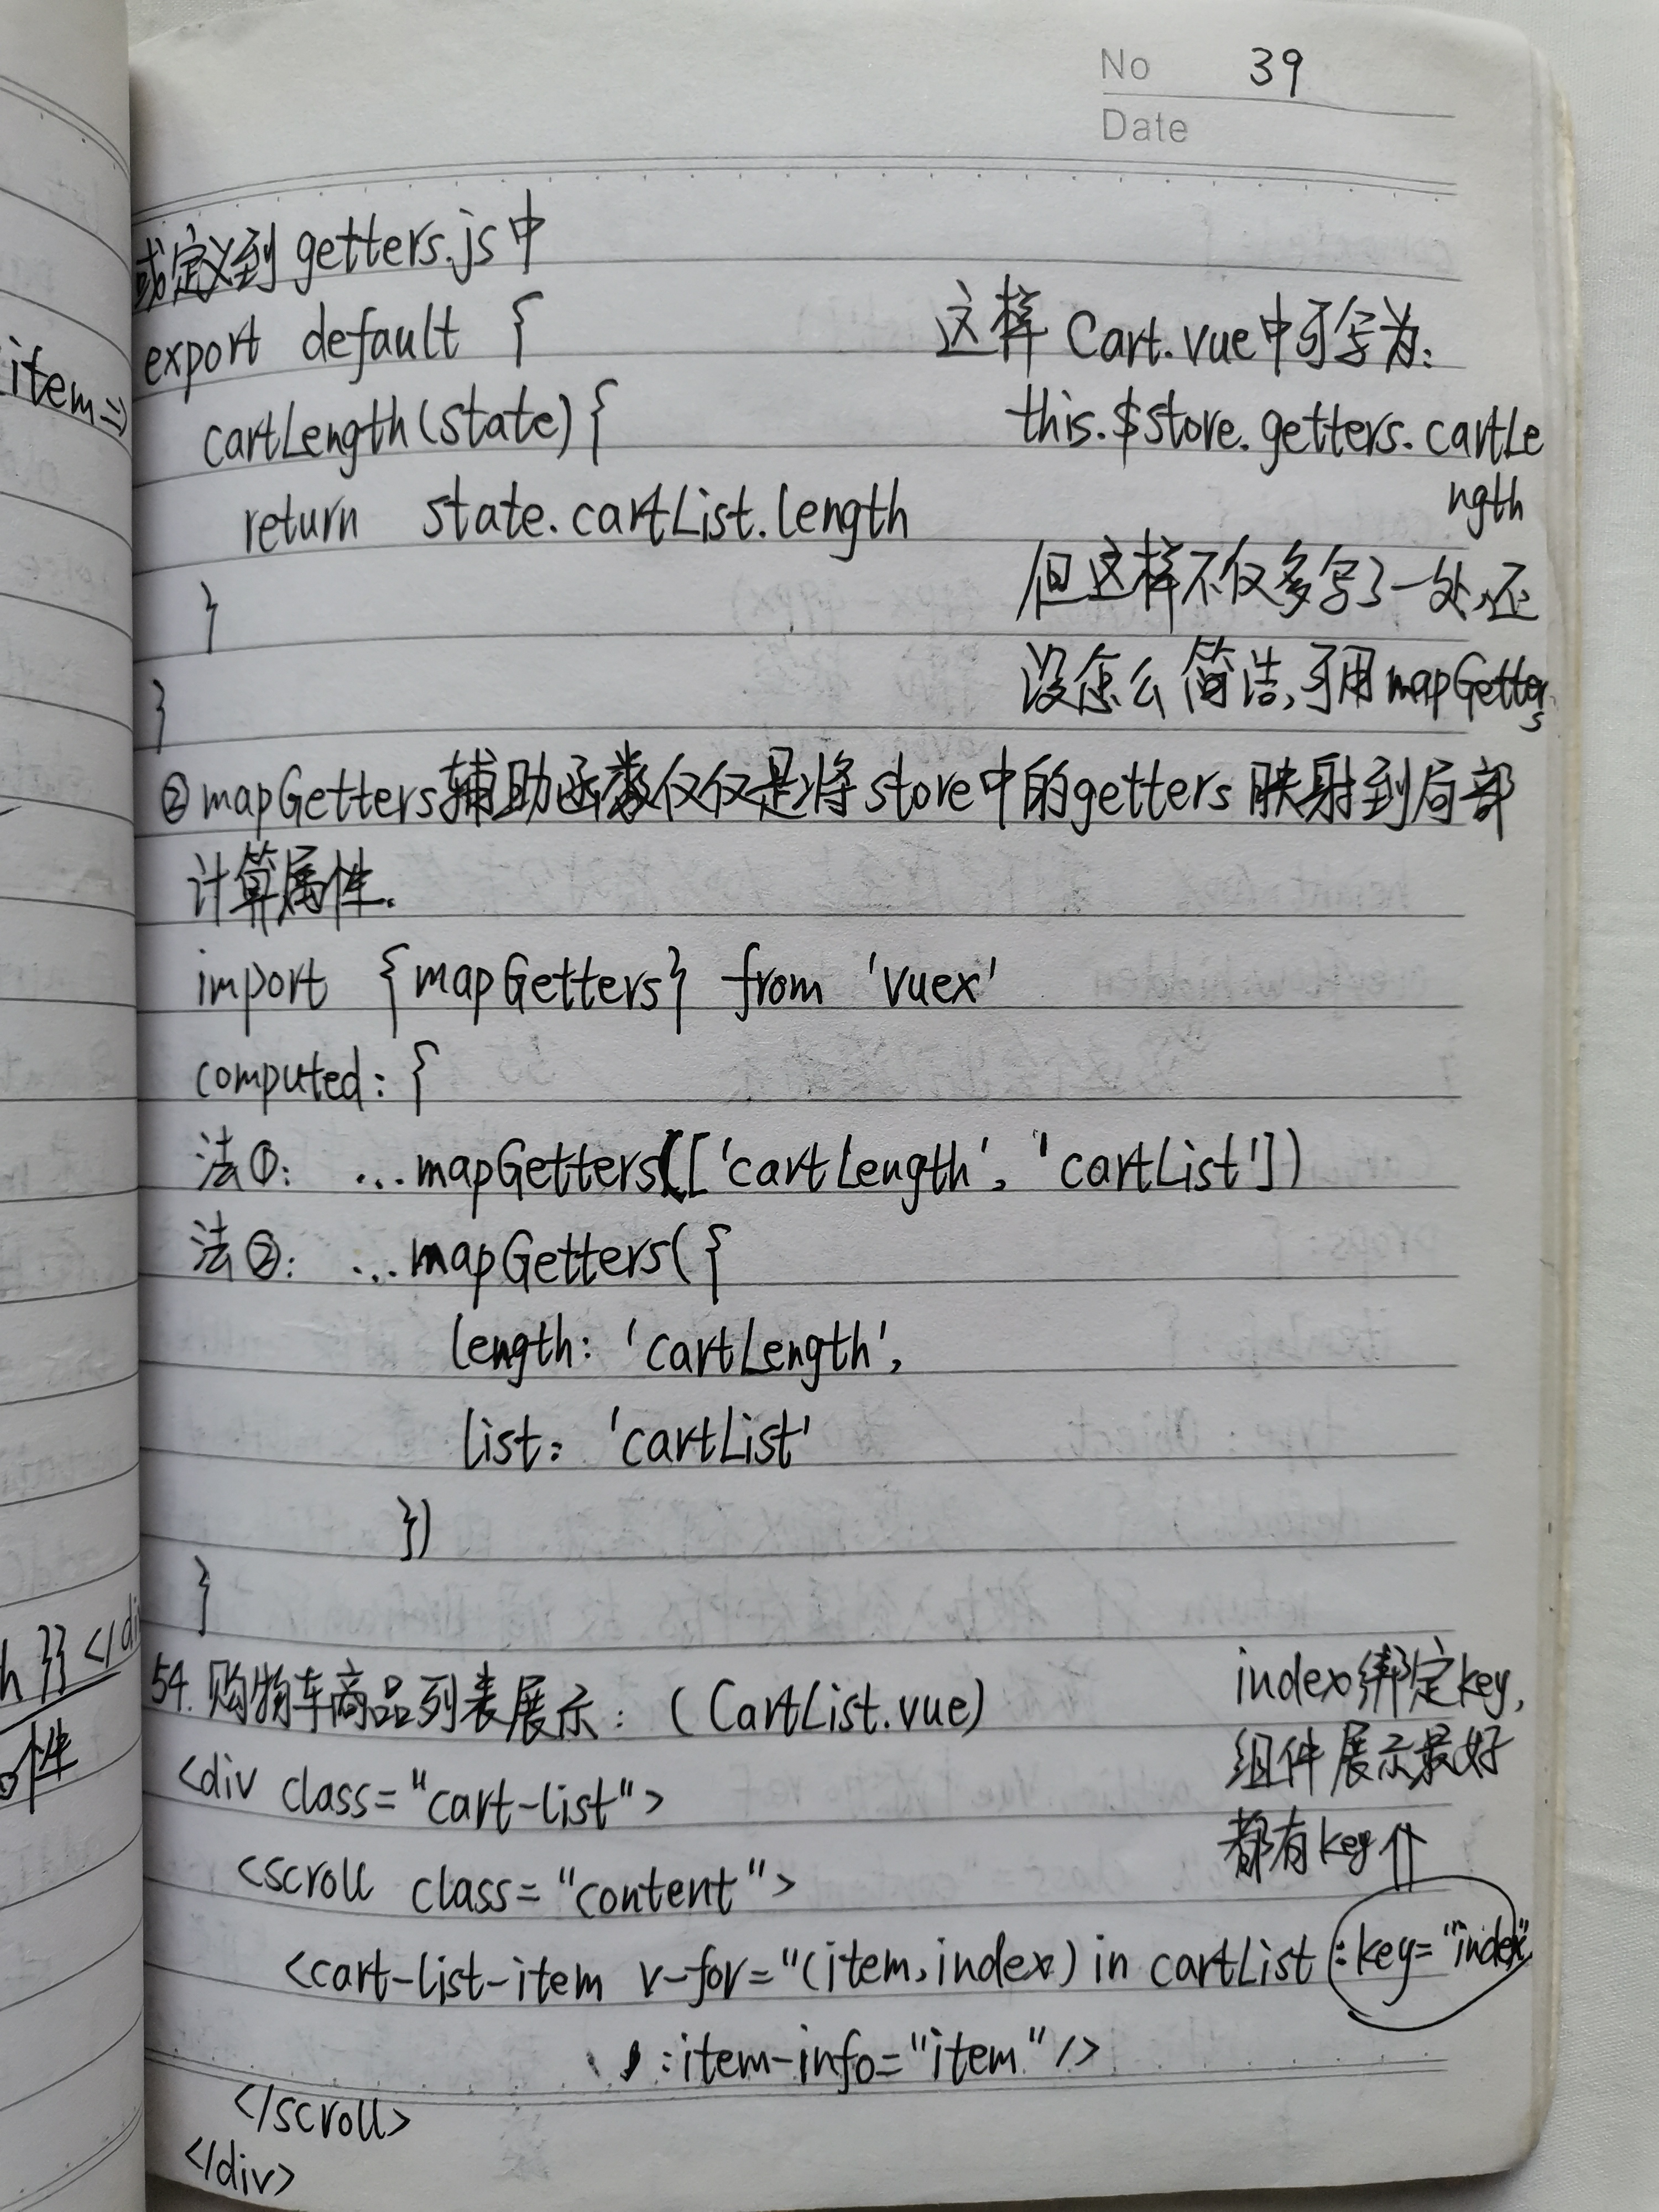 No 39
Date
或定义到 getters.js中
export default {
cartLength(state){
return state.cartList.length
}
}
这样 Cart.vue中可写为:
this.$store.getters.cartLe
ngth
但这样不仅多写了一处,还
没怎么简洁,可用mapGetters
②mapGetters辅助函数仅仅是将store中的getters 映射到局部
计算属性.
import {mapGetters} from 'vuex'
computed: {
法①: ...mapGetters(['cartLength', 'cartList'])
法②: ...mapGetters({
length: 'cartLength',
list: 'cartList'
})
}
54. 购物车商品列表展示: (CartList.vue)
index绑定key,
组件展示最好
都有key⇑
<div class="cart-list">
<scroll class="content">
<cart-list-item v-for="(item,index) in cartList :key="index"
:item-info="item"/>
</scroll>
</div>
item=>
}} </di
件